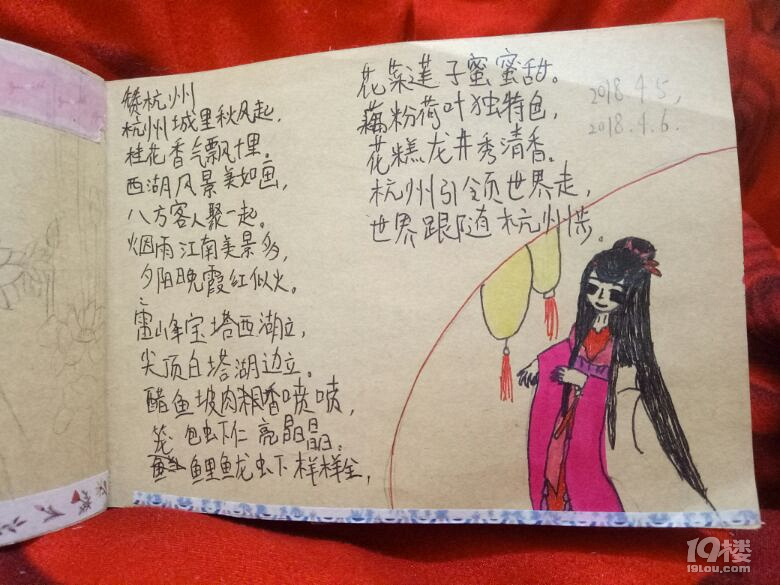 赞杭州
杭州城里秋风起,
桂花香气飘十里。
西湖风景美如画,
八方客人聚一起。
烟雨江南美景多,
夕阳晚霞红似火。
雷峰宝塔西湖立,
尖顶白塔湖边立。
醋鱼坡肉粗香喷喷,
笼包虾仁亮晶晶。
鲤龙虾样样全,
花菜莲子蜜蜜甜。
藕粉荷叶独特色,
花糕龙井秀清香。
杭州引领世界走,
世界跟随杭州步。
2018.4.5,
2018.4.6.
19楼
19lou.com